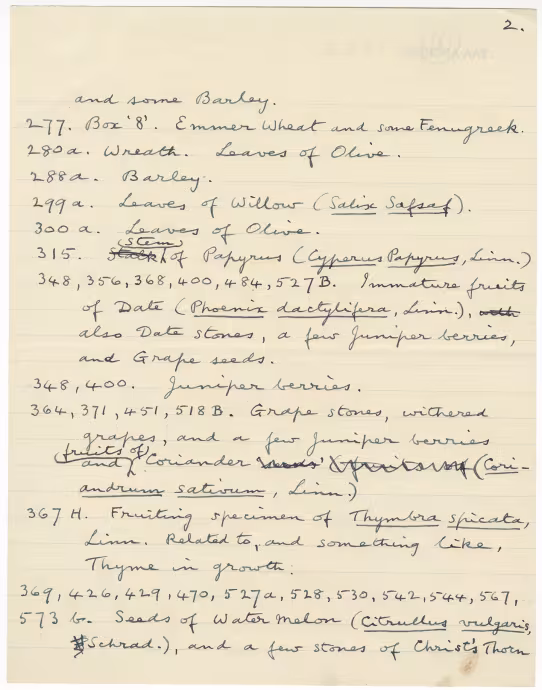 2.
and some Barley.
277. Box '8'. Emmer Wheat and some Fenugreek.
280a. Wreath. Leaves of Olive.
288a. Barley.
299a. Leaves of Willow (Salix Safsaf).
300a. Leaves of Olive.
315. Stalk stem of Papyrus (Cyperus Papyrus, Linn.)
348, 356, 368, 400, 484, 527B. Immature fruits
of Date (Phoenix dactylifera, Linn.), with
also Date stones, a few Juniper berries,
and Grape seeds.
348, 400. Juniper berries.
364, 371, 451, 518B. Grape stones, withered
grapes, and a few Juniper berries
and fruits of Coriander seeds (Cori-
andrum sativum, Linn.)
367H. Fruiting specimen of Thymbra spicata,
Linn. Related to, and something like,
Thyme in growth.
369, 426, 429, 470, 527a, 528, 530, 542, 544, 567,
573 b. Seeds of Water Melon (Citrullus vulgaris,
Schrad.), and a few stones of Christ's Thorn